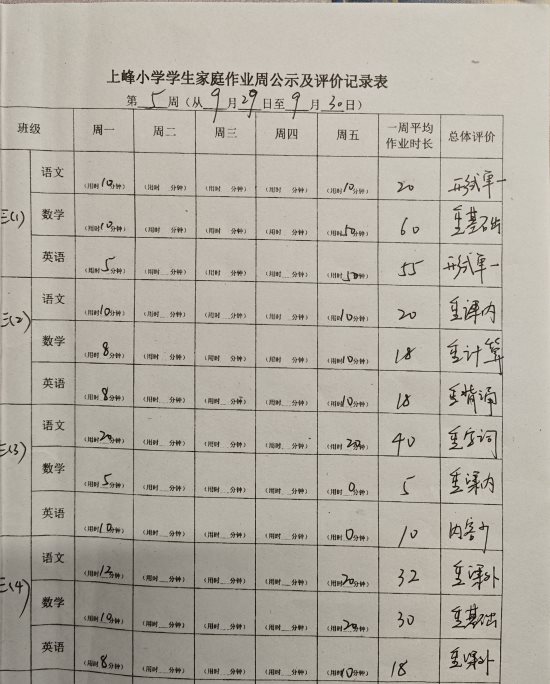 上峰小学学生家庭作业周公示及评价记录表
第 5 周（从 9 月 29 日至 9 月 30 日）
班级 周一 周二 周三 周四 周五 一周平均作业时长 总体评价
三(1) 语文 （用时10分钟） （用时 分钟） （用时 分钟） （用时 分钟） （用时10分钟） 20 形式单一
数学 （用时10分钟） （用时 分钟） （用时 分钟） （用时 分钟） （用时50分钟） 60 重基础
英语 （用时5分钟） （用时 分钟） （用时 分钟） （用时 分钟） （用时50分钟） 55 形式单一
三(2) 语文 （用时10分钟） （用时 分钟） （用时 分钟） （用时 分钟） （用时10分钟） 20 重课内
数学 （用时8分钟） （用时 分钟） （用时 分钟） （用时 分钟） （用时10分钟） 18 重计算
英语 （用时8分钟） （用时 分钟） （用时 分钟） （用时 分钟） （用时10分钟） 18 重背诵
三(3) 语文 （用时20分钟） （用时 分钟） （用时 分钟） （用时 分钟） （用时20分钟） 40 重字词
数学 （用时5分钟） （用时 分钟） （用时 分钟） （用时 分钟） （用时0分钟） 5 重课内
英语 （用时10分钟） （用时 分钟） （用时 分钟） （用时 分钟） （用时0分钟） 10 内容少
三(4) 语文 （用时12分钟） （用时 分钟） （用时 分钟） （用时 分钟） （用时20分钟） 32 重课外
数学 （用时10分钟） （用时 分钟） （用时 分钟） （用时 分钟） （用时20分钟） 30 重基础
英语 （用时8分钟） （用时 分钟） （用时 分钟） （用时 分钟） （用时10分钟） 18 重课外